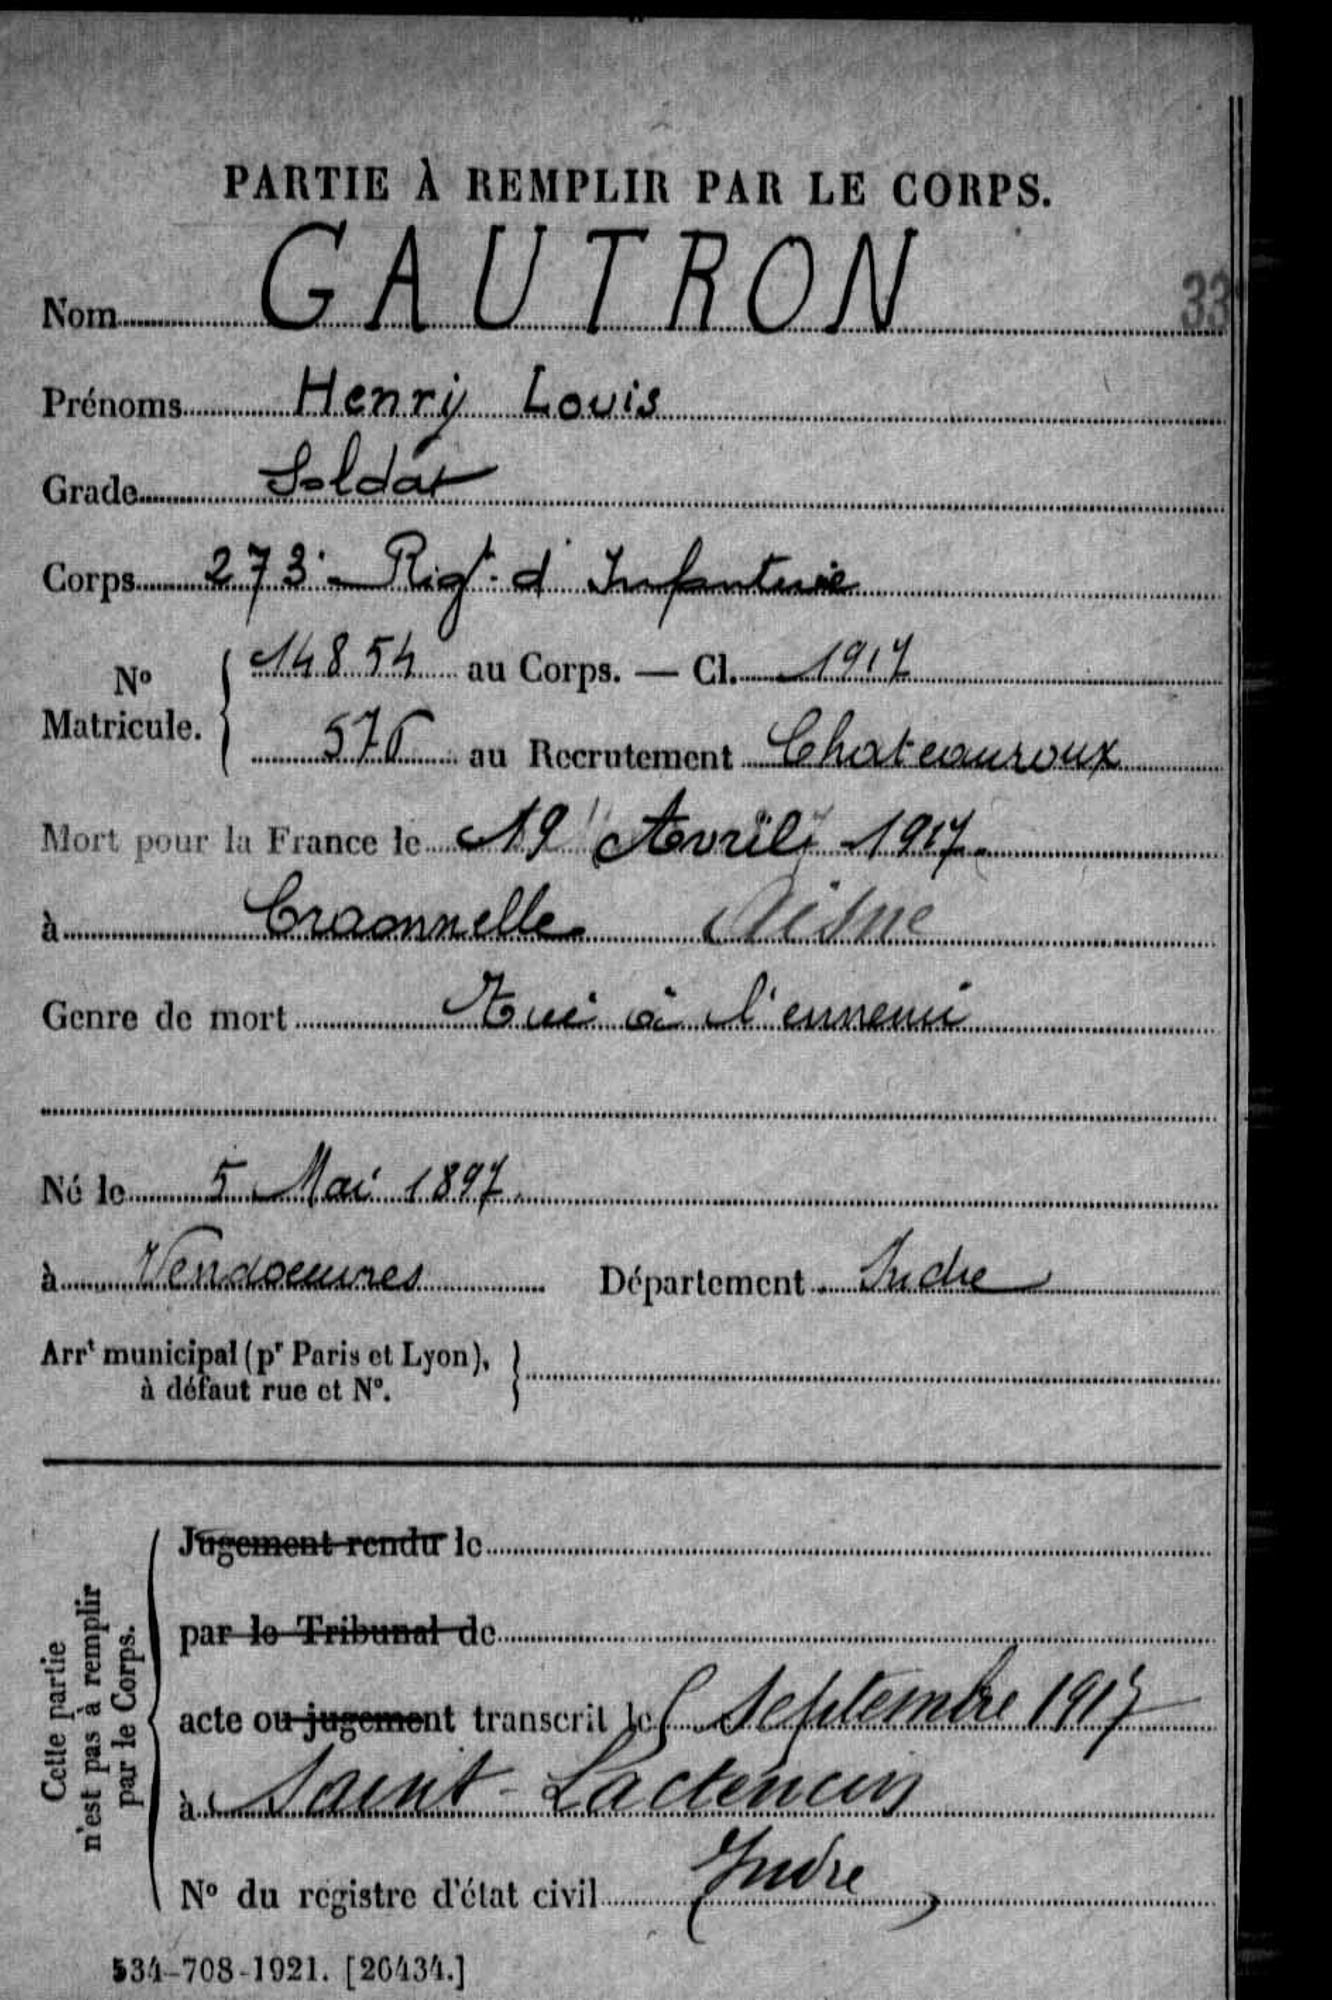 PARTIE À REMPLIR PAR LE CORPS.
Nom GAUTRON 33
Prénoms Henry Louis
Grade Soldat
Corps 273e Rigt. d'Infanterie
No Matricule. { 14854 au Corps. — Cl. 1917
576 au Recrutement Chateauroux
Mort pour la France le 19 Avril 1917.
à Craonnelle Aisne
Genre de mort Tué à l'ennemi
Né le 5 Mai 1897
à Vendoeuvres Département Indre
Arrt municipal (pr Paris et Lyon),
à défaut rue et No.
Cette partie
n'est pas à remplir
par le Corps.
Jugement rendu le
par le Tribunal de
acte ou jugement transcrit le Septembre 1917
à Saint-Lactencin
Indre
No du registre d'état civil
534-708-1921. [26434.]